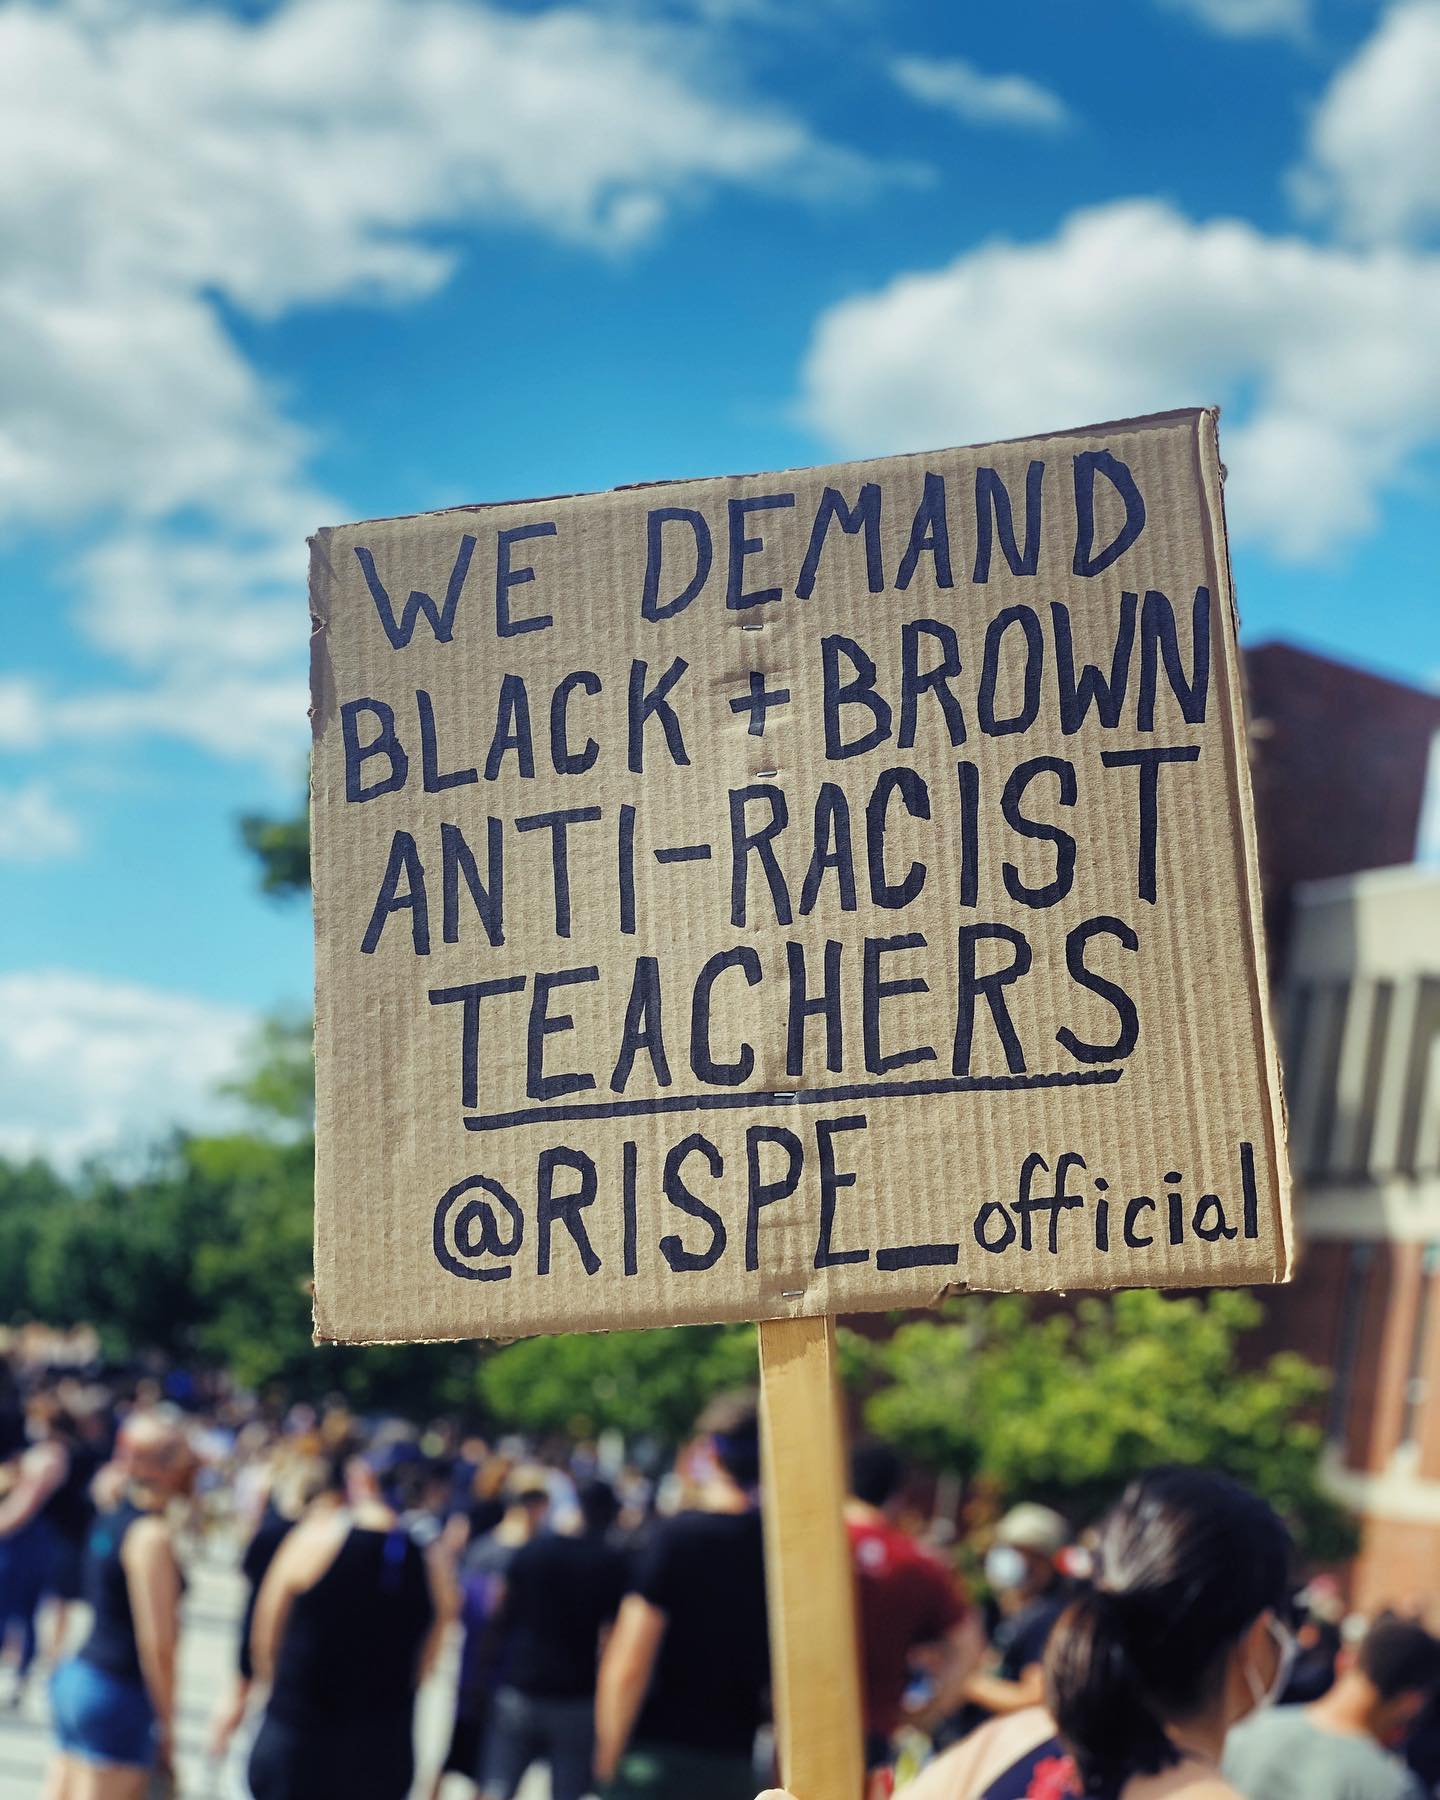 WE DEMAND
BLACK + BROWN
ANTI-RACIST
TEACHERS
@RISPE_official